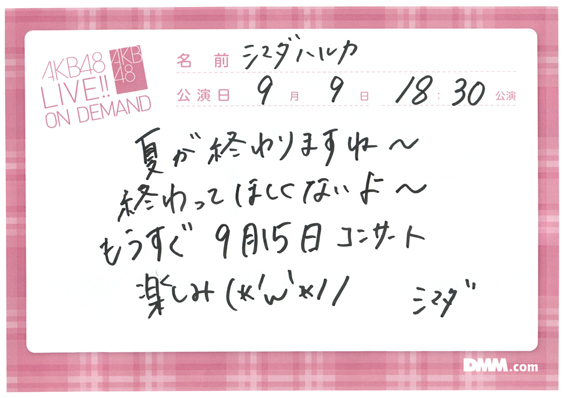 AKB48
LIVE!!
ON DEMAND
AKB
48
名前 シマダハルカ
公演日 9月9日 18:30公演
夏が終わりますね〜
終わってほしくないよ〜
もうすぐ9月15日コンサート
楽しみ(*'ω'*)ノ
シマダ
DMM.com